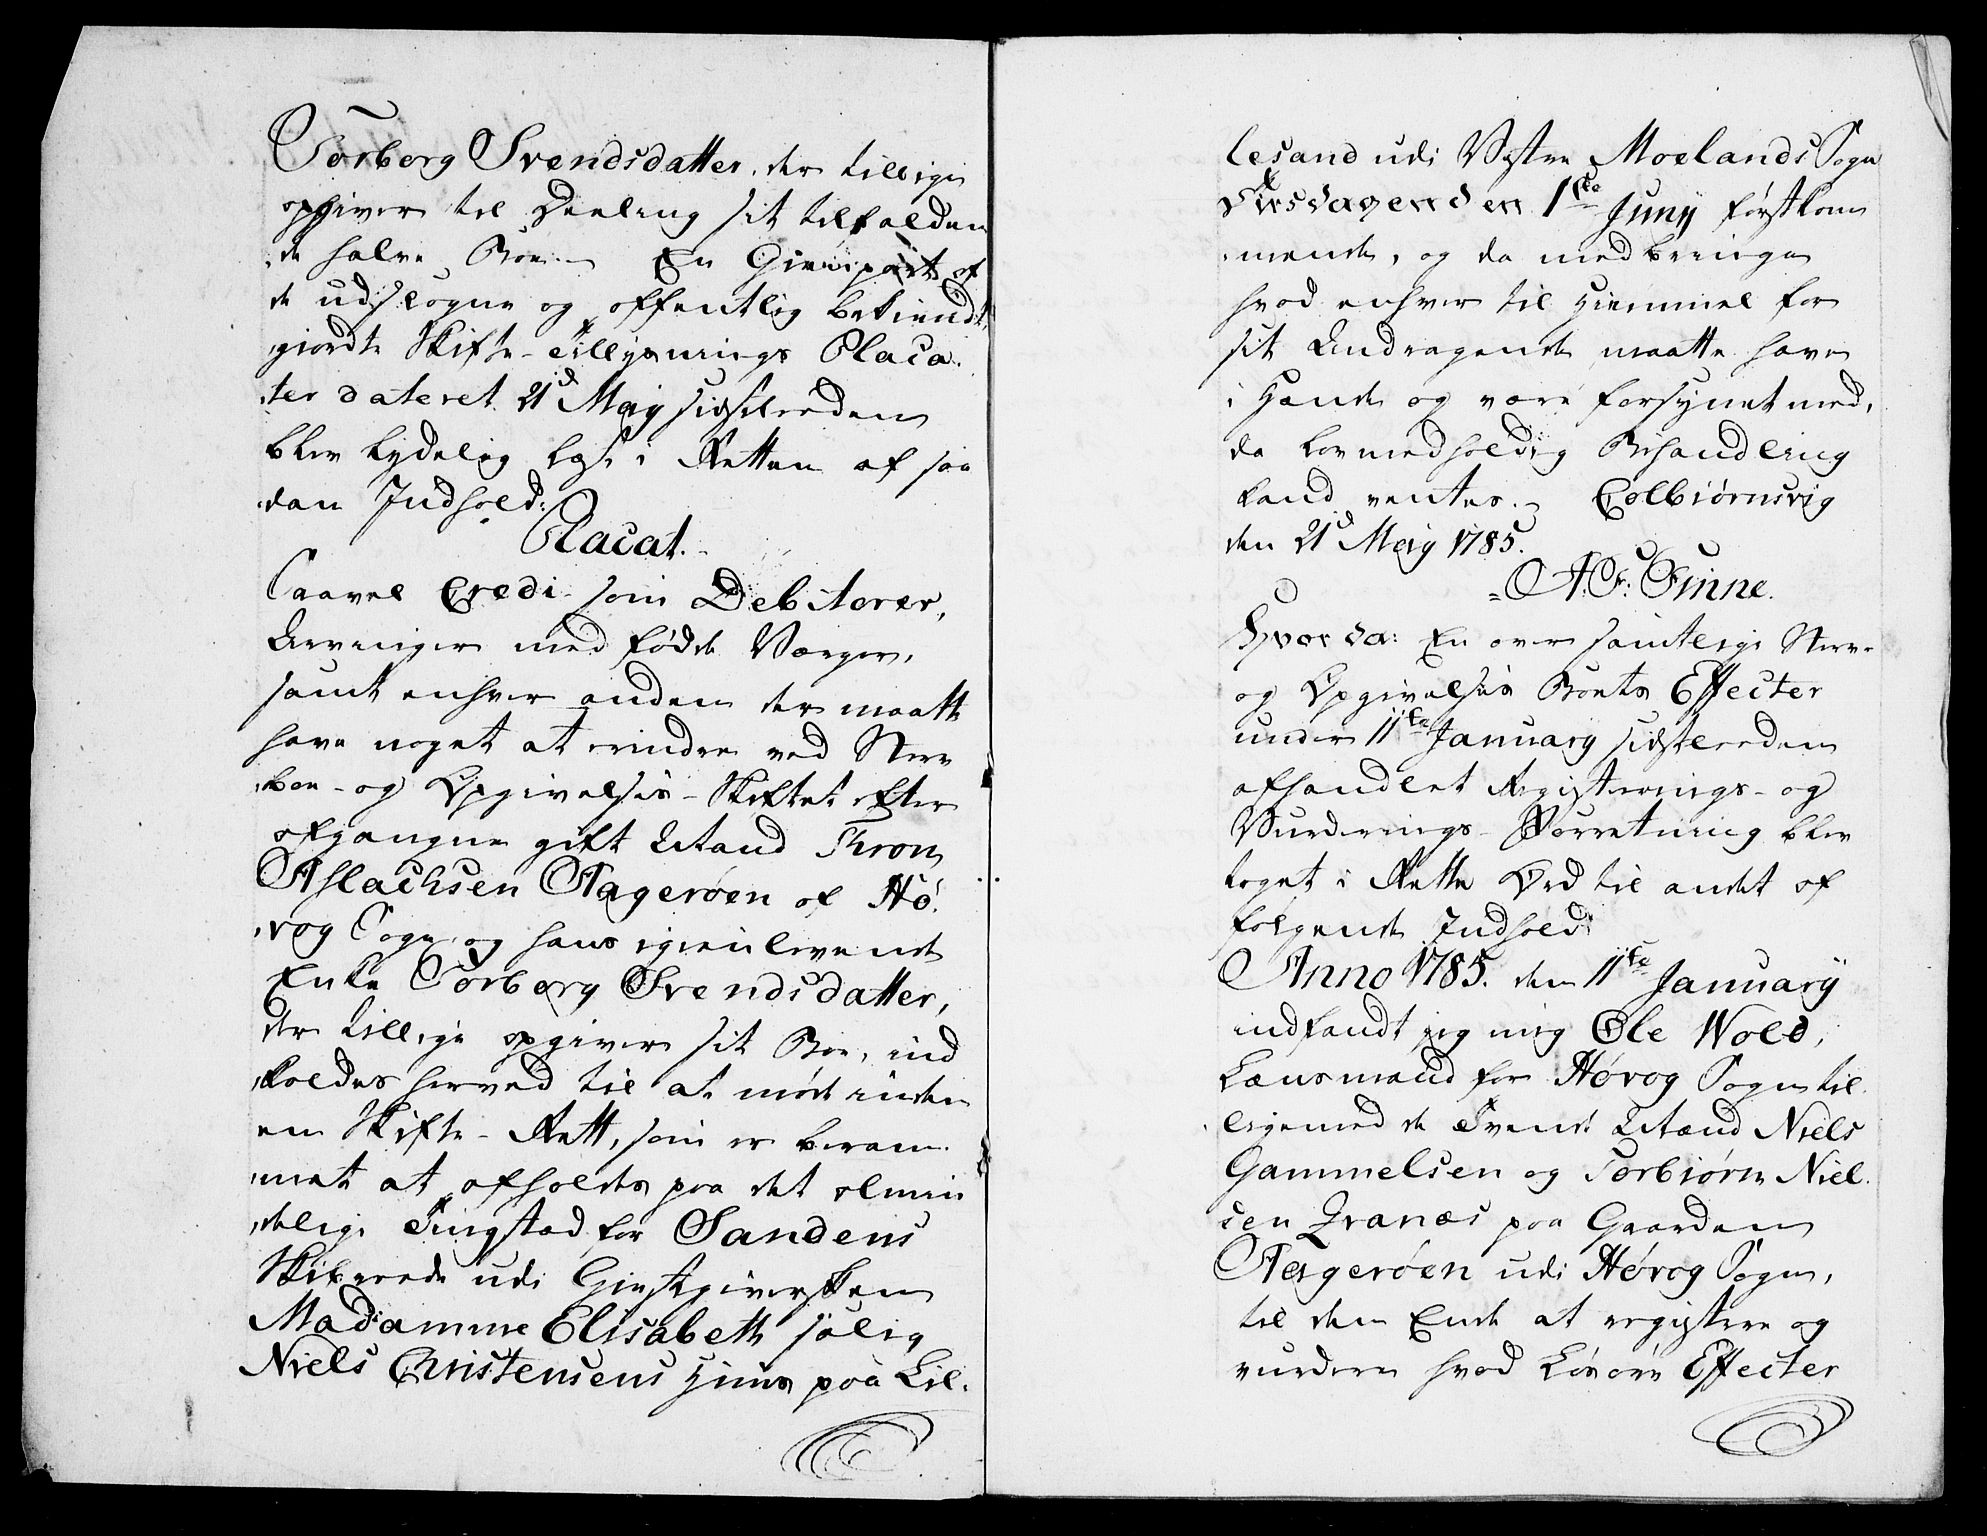 Torborg Svendsdatter, der tillige
opgiver til Deeling sit tilfalden
de halve Boe. En Gienpart af
de udslagne og offentlig bekiendt
giordte Skifte-Tillysnings Placa-
ter dateret 21d Maij sidstleeden
blev lydelig læst i Retten af saa
dan Indhold:
Placat.
Saavel Credi- som Debitorer,
Arvinger med fødde Værger,
samt enhver anden der maatte
have noget at erindre ved Sterv
boe- og Opgivelses-Skiftet efter
afgangne gift Mand Thron
Aslachsen Aagerøen af Hø-
vog Sogn og hans igienlevende
Enke Torborg Svendsdatter,
der tillige opgiver sit Boe, ind
kaldes herved til at møde inden
en Skifte-Rett, som er beram-
met at afholdes paa det almin
delige Tingstad for Sandens
Skibrede udi Giestgiversken
Madamme Elisabeth salig
Niels Christensens Huus paa Lil-
lesand udi Vestre Moelands Sogn
Tirsdagen den 1ste Junij førstkom
mende, og da medbringe
hvad enhver til Hiemmel for
sit Andragende maatte have
i Hænde og være forsynet med,
da lovmedholdig Behandling
kand ventes. Colbiørnsvig
den 21d Maij 1785.
A: F: Finne.
Hvorda: En over samtlige Sterv-
og Opgivelses Boets Effecter
under 11te January sidstleeden
afhandlet Registerings- og
Vurderings-Forretning blev
taget i Rette Ord til andet af
følgende Indhold:
Anno 1785. den 11te January
indfandt jeg mig Ole Wold,
Lænsmand for Høvog Sogn til-
ligemed de Tvende Mænd Niels
Gammelsen og Torbiørn Niel-
sen Qvanæs paa Gaarden
Aagerøen udi Høvog Sogn,
til den Ende at registere og
vurdere hvad Løsøre Effecter